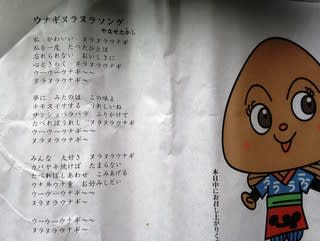 ウナギヌラヌラソング
やなせたかし
私 かわいい ヌラヌラウナギ
私を一度 たべたひとは
忘れられない おいしさに
心ときめく ヌラヌラウナギ
ウーウーウナギ〜〜
ヌラヌラウナギ
夢に みたのは この味よ
キモスイすする うれしいね
サンショパラパラ ふりかけて
たべればうれし ヌラヌラウナギ
ウーウーウナギ〜〜
ヌラヌラウナギ
みんな 大好き ヌラヌラウナギ
カバヤキ焼けば たまらない
たべればしあわせ こみあげる
ウナ丼ウナ重 お好みしだい
ウーウーウナギ〜〜
ヌラヌラウナギ
ウーウーウナギ〜〜
ヌラヌラウナギ
本日中にお召し上がりく